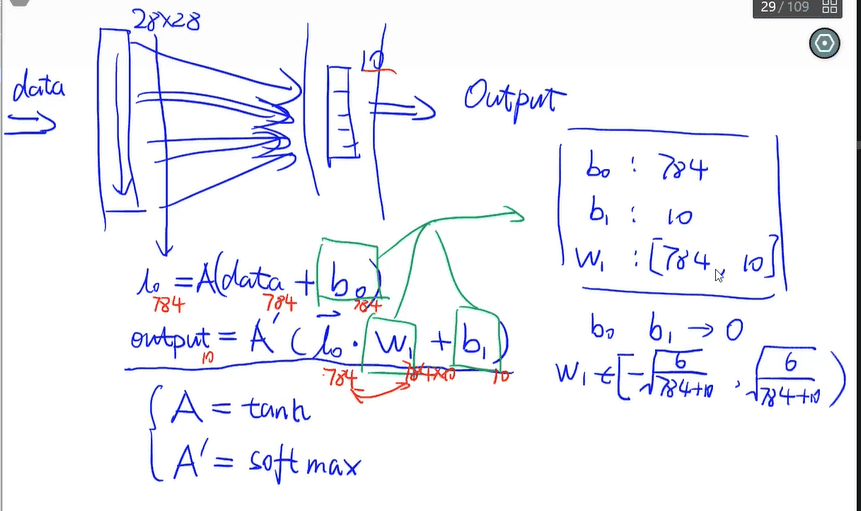 29 / 109
28×28
10
data
Output
b₀ : 784
b₁ : 10
W₁ : [784, 10]
l₀ = A(data + b₀)
784 784 784
output = A′(l₀ · W₁ + b₁)
10 784 784×10 10
b₀ b₁ → 0
W₁ ∈ [-√(6/(784+10)), √(6/(784+10)))
A = tanh
A′ = softmax